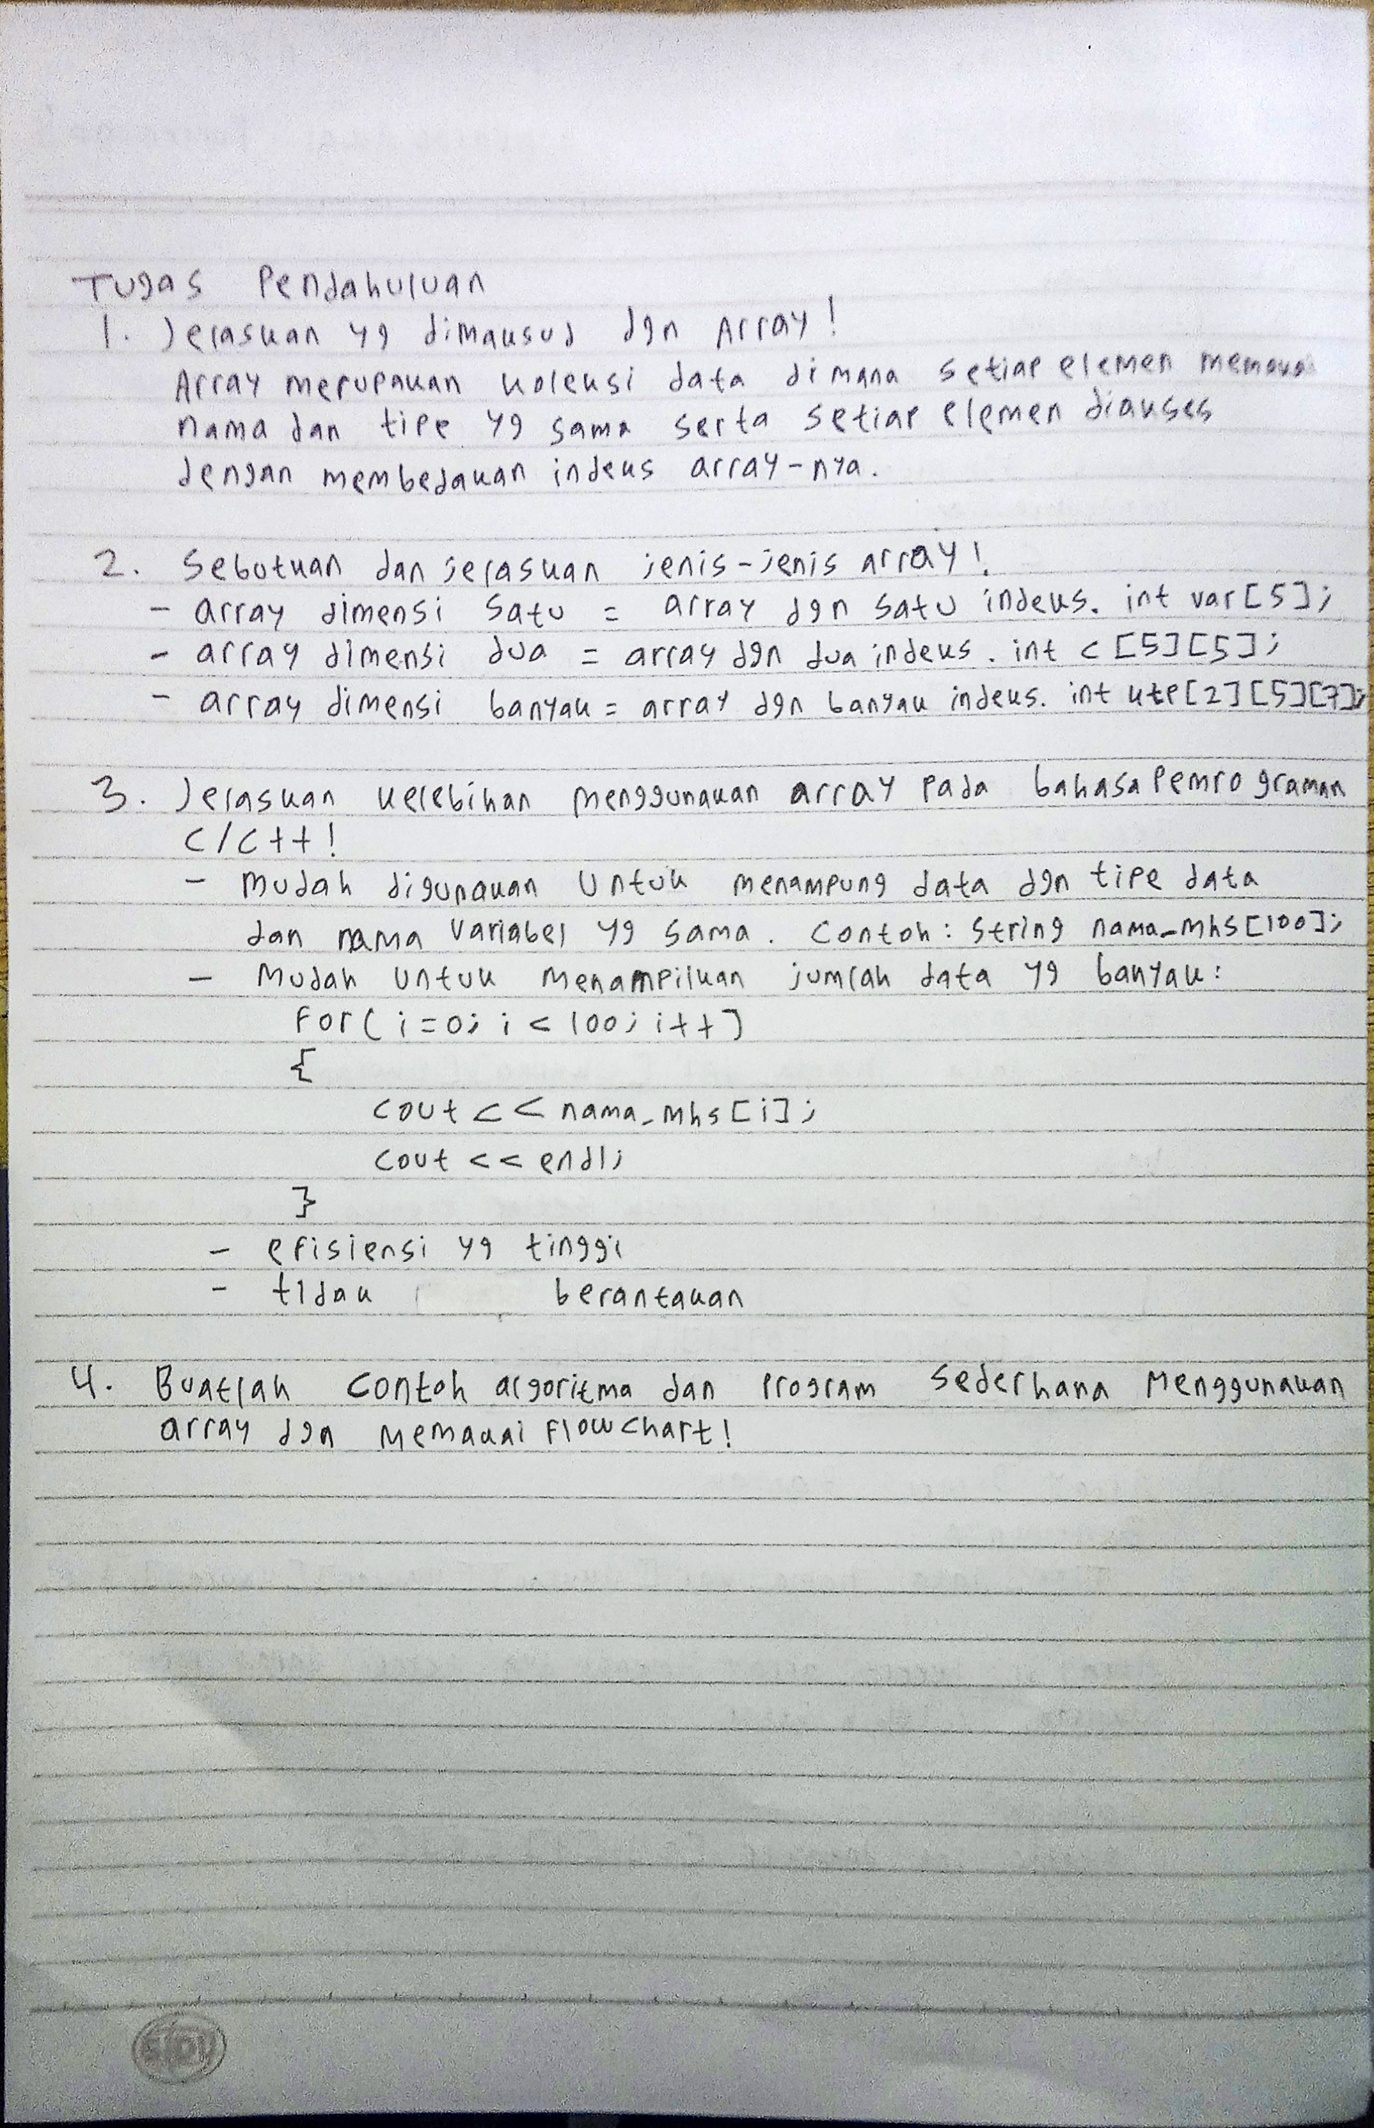 Tugas Pendahuluan
1. Jelaskan yg dimaksud dgn Array!
Array merupakan koleksi data dimana setiap elemen memakai
nama dan tipe yg sama serta setiap elemen diakses
dengan membedakan indeks array-nya.
2. Sebutkan dan jelaskan jenis-jenis array!
- array dimensi satu = array dgn satu indeks. int var[5];
- array dimensi dua = array dgn dua indeks. int c[5][5];
- array dimensi banyak = array dgn banyak indeks. int ktp[2][5][7];
3. Jelaskan kelebihan menggunakan array pada bahasa Pemrograman
C/C++!
- mudah digunakan untuk menampung data dgn tipe data
dan nama variabel yg sama. Contoh: String nama_mhs[100];
- Mudah untuk menampilkan jumlah data yg banyak:
For(i=0; i<100; i++)
{
cout << nama_mhs[i];
cout << endl;
}
- efisiensi yg tinggi
- tidak berantakan
4. Buatlah contoh algoritma dan program sederhana menggunakan
array dgn memakai flowchart!
SIDU